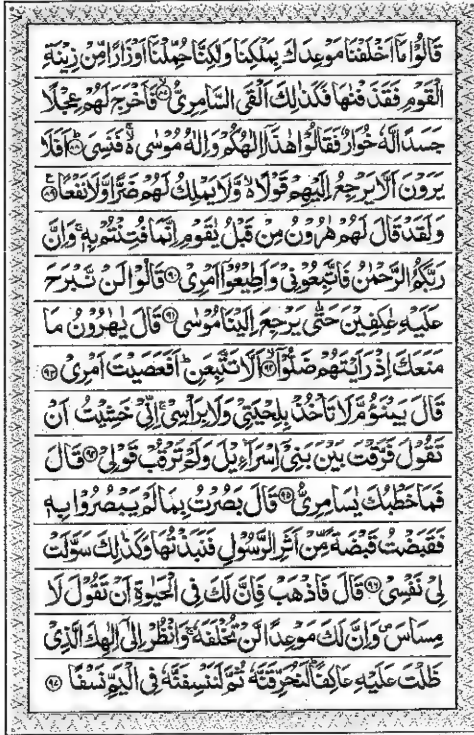 قَالُوۡا مَاۤ اَخۡلَفۡنَا مَوۡعِدَكَ بِمَلۡكِنَا وَلٰكِنَّا حُمِّلۡنَاۤ اَوۡزَارًا مِّنۡ زِيۡنَةِ
الۡقَوۡمِ فَقَذَفۡنٰهَا فَكَذٰلِكَ اَلۡقَى السَّامِرِىُّ ۙ‏﴿۸۷﴾ فَاَخۡرَجَ لَهُمۡ عِجۡلًا
جَسَدًا لَّهٗ خُوَارٌ فَقَالُوۡا هٰذَاۤ اِلٰهُكُمۡ وَاِلٰهُ مُوۡسٰى ۚ فَنَسِىَ ؕ‏﴿۸۸﴾ اَفَلَا
يَرَوۡنَ اَلَّا يَرۡجِعُ اِلَيۡهِمۡ قَوۡلًا ۙ وَّلَا يَمۡلِكُ لَهُمۡ ضَرًّا وَّلَا نَفۡعًا‏﴿۸۹﴾
وَلَقَدۡ قَالَ لَهُمۡ هٰرُوۡنُ مِنۡ قَبۡلُ يٰقَوۡمِ اِنَّمَا فُتِنۡتُمۡ بِهٖ ۚ وَاِنَّ
رَبَّكُمُ الرَّحۡمٰنُ فَاتَّبِعُوۡنِىۡ وَاَطِيۡعُوۡۤا اَمۡرِىۡ‏﴿۹۰﴾ قَالُوۡا لَنۡ نَّبۡرَحَ
عَلَيۡهِ عٰكِفِيۡنَ حَتّٰى يَرۡجِعَ اِلَيۡنَا مُوۡسٰى‏﴿۹۱﴾ قَالَ يٰهٰرُوۡنُ مَا
مَنَعَكَ اِذۡ رَاَيۡتَهُمۡ ضَلُّوۡۤا ۙ‏﴿۹۲﴾ اَلَّا تَتَّبِعَنِ ؕ اَفَعَصَيۡتَ اَمۡرِىۡ‏﴿۹۳﴾
قَالَ يَبۡنَؤُمَّ لَا تَاۡخُذۡ بِلِحۡيَتِىۡ وَلَا بِرَاۡسِىۡ ۚ اِنِّىۡ خَشِيۡتُ اَنۡ
تَقُوۡلَ فَرَّقۡتَ بَيۡنَ بَنِىۡۤ اِسۡرَآءِيۡلَ وَلَمۡ تَرۡقُبۡ قَوۡلِىۡ‏﴿۹۴﴾ قَالَ
فَمَا خَطۡبُكَ يٰسَامِرِىُّ‏﴿۹۵﴾ قَالَ بَصُرۡتُ بِمَا لَمۡ يَبۡصُرُوۡا بِهٖ
فَقَبَضۡتُ قَبۡضَةً مِّنۡ اَثَرِ الرَّسُوۡلِ فَنَبَذۡتُهَا وَكَذٰلِكَ سَوَّلَتۡ
لِىۡ نَفۡسِىۡ‏﴿۹۶﴾ قَالَ فَاذۡهَبۡ فَاِنَّ لَكَ فِى الۡحَيٰوةِ اَنۡ تَقُوۡلَ لَا
مِسَاسَ ۖ وَاِنَّ لَكَ مَوۡعِدًا لَّنۡ تُخۡلَفَهٗ ۚ وَانْظُرۡ اِلٰٓى اِلٰهِكَ الَّذِىۡ
ظَلۡتَ عَلَيۡهِ عَاكِفًا ؕ لَّـنُحَرِّقَنَّهٗ ثُمَّ لَنَنۡسِفَنَّهٗ فِى الۡيَمِّ نَسۡفًا‏﴿۹۷﴾